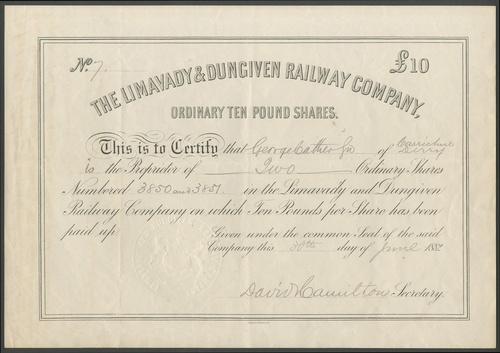 No. 7. £10
THE LIMAVADY & DUNGIVEN RAILWAY COMPANY,
ORDINARY TEN POUND SHARES.
This is to Certify that George Cather Jr of
is the Proprietor of Two Ordinary Shares
Numbered 3850 and 3851 in the Limavady and Dungiven
Railway Company on which Ten Pounds per Share has been
paid up.
Given under the common Seal of the said
Company this 30th day of June 188
David Hamilton Secretary.